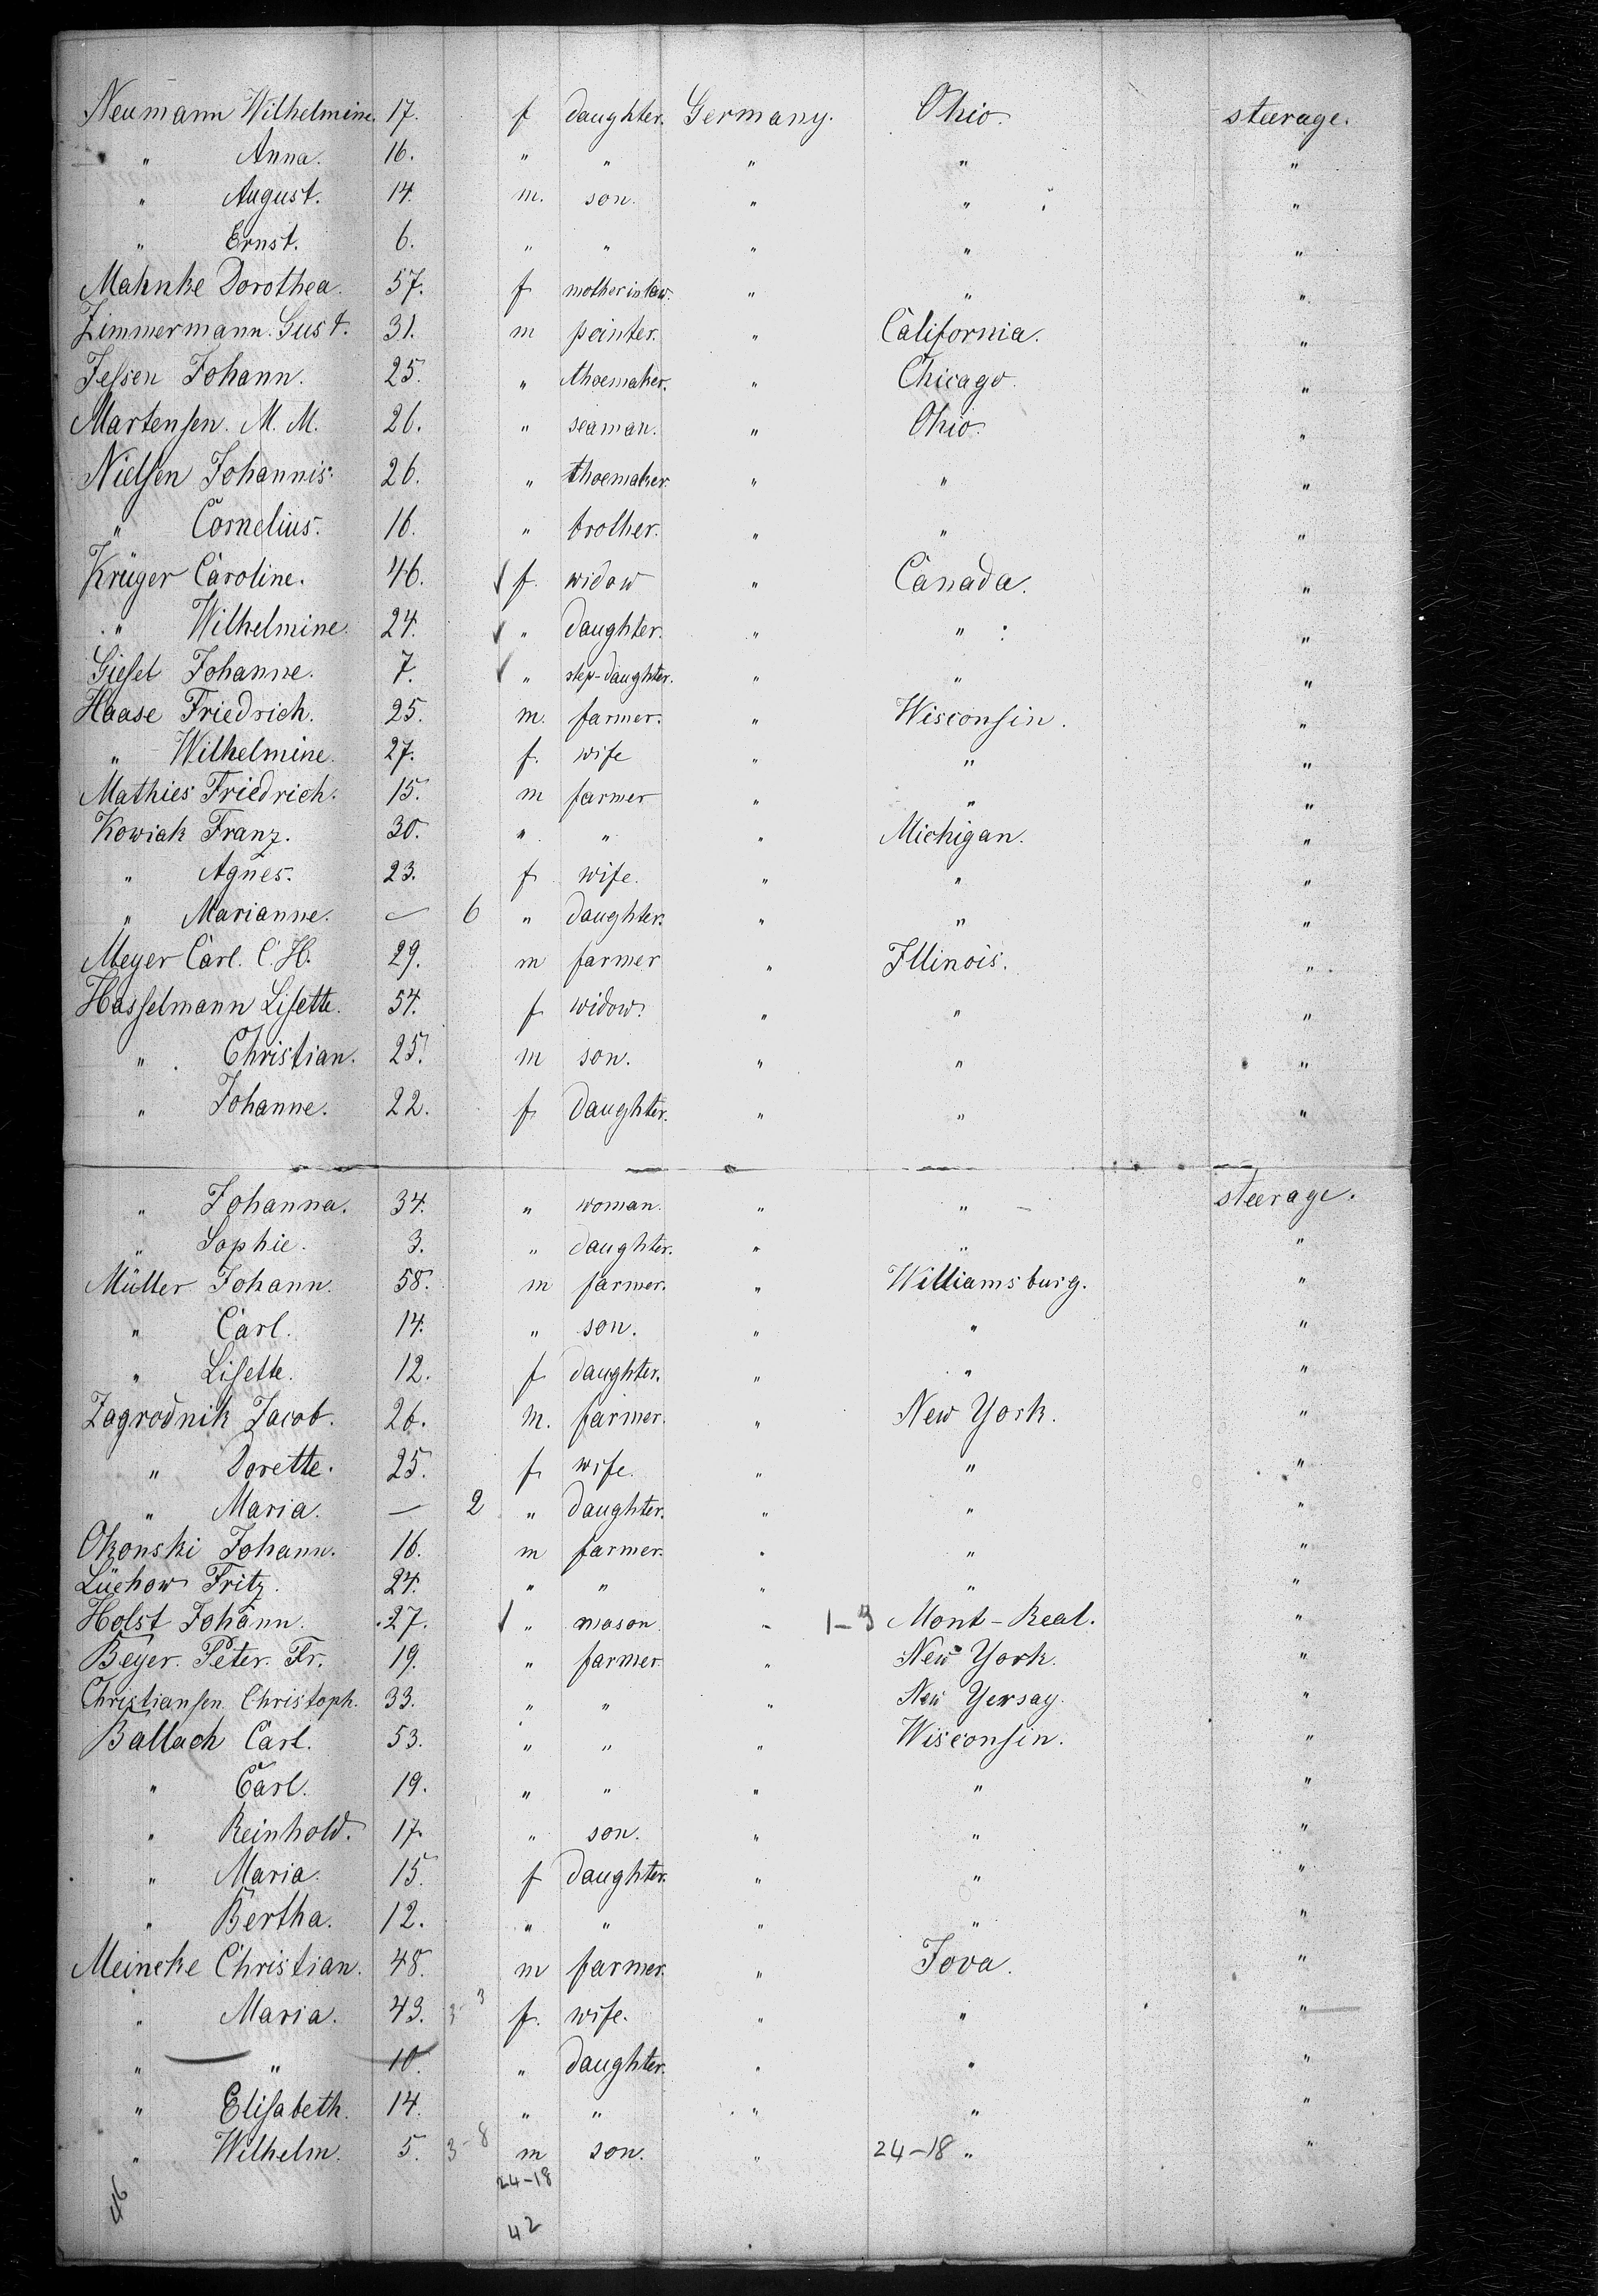 Neumann Wilhelmine. 17. f daughter. Germany. Ohio. steerage.
" Anna. 16. " " " " "
" August. 14. m. son. " " "
" Ernst. 6. " " " " "
Mahnke Dorothea. 57. f mother in law. " " "
Zimmermann. Gust. 31. m painter. " California. "
Jessen Johann. 25. " shoemaker. " Chicago. "
Martensen. M. M. 26. " seaman. " Ohio. "
Nielsen Johannis. 26. " shoemaker. " " "
" Cornelius. 16. " brother. " " "
Krüger Caroline. 46. f. widow " Canada. "
" Wilhelmine. 24. " daughter. " " "
Giesel Johanne. 7. " step-daughter. " " "
Haase Friedrich. 25. m. farmer. " Wisconsin. "
" Wilhelmine. 27. f. wife " " "
Mathies Friedrich. 15. m farmer " " "
Kowiak Franz. 30. " " " Michigan. "
" Agnes. 23. f wife. " " "
" Marianne. — 6 " daughter. " " "
Meyer Carl. C. H. 29. m farmer " Illinois. "
Hasselmann Lisette. 54. f widow. " " "
" Christian. 25. m son. " " "
" Johanne. 22. f daughter. " " "
" Johanna. 34. " woman. " " steerage.
" Sophie. 3. " daughter. " " "
Müller Johann. 58. m farmer. " Williamsburg. "
" Carl. 14. " son. " " "
" Lisette. 12. f daughter. " " "
Zagrodnik Jacob. 26. m. farmer. " New York. "
" Dorette. 25. f wife. " " "
" Maria. — 2 " daughter. " " "
Okonski Johann. 16. m farmer. " " "
Lüchow Fritz. 24. " " " " "
Holst Johann. 27. " mason. " 1-3 Mont-Real. "
Beyer. Peter. Fr. 19. " farmer. " New York. "
Christiansen Christoph. 33. " " " New Yersay. "
Ballach Carl. 53. " " " Wisconsin. "
" Carl. 19. " " " " "
" Reinhold. 17. " son. " " "
" Maria. 15. f daughter. " " "
" Bertha. 12. " " " " "
Meincke Christian. 48. m farmer. " Iova. "
" Maria. 43. 3-3 f. wife. " " "
" " 10. " daughter. " " "
" Elisabeth. 14. " " " " "
" Wilhelm. 5. 3-8 m son. " 24-18 " "
24-18
46
42